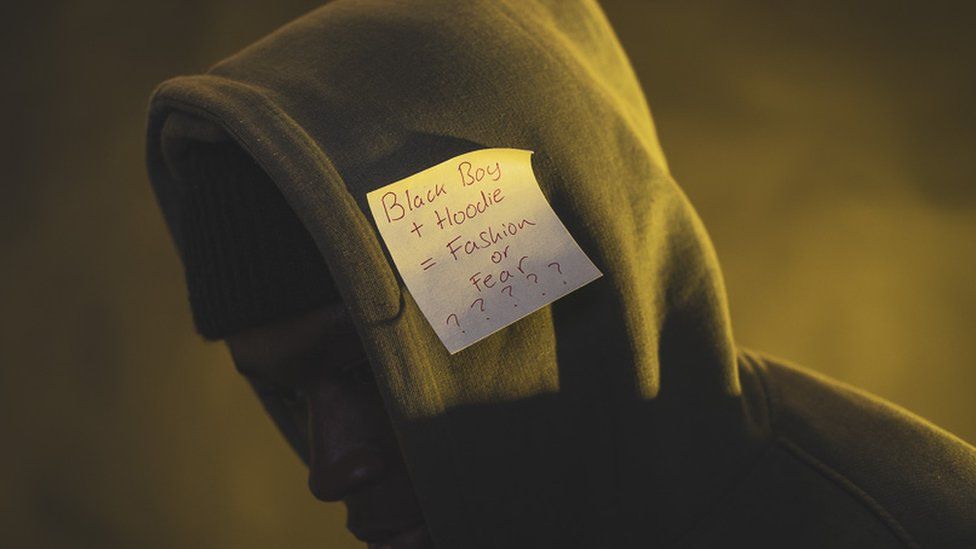 Black Boy
+ Hoodie
= Fashion
or
Fear
? ? ? ? ?